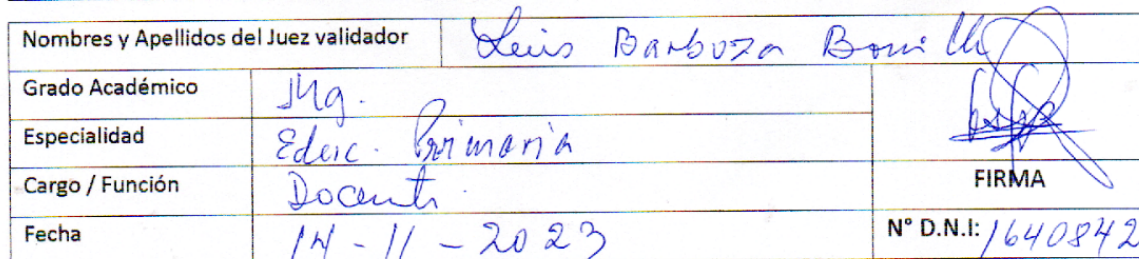 Nombres y Apellidos del Juez validador Luis Barboza Bonilla
Grado Académico Mg.
Especialidad Educ. Primaria
Cargo / Función Docente
FIRMA
Fecha 14-11-2023
N° D.N.I: 1640842